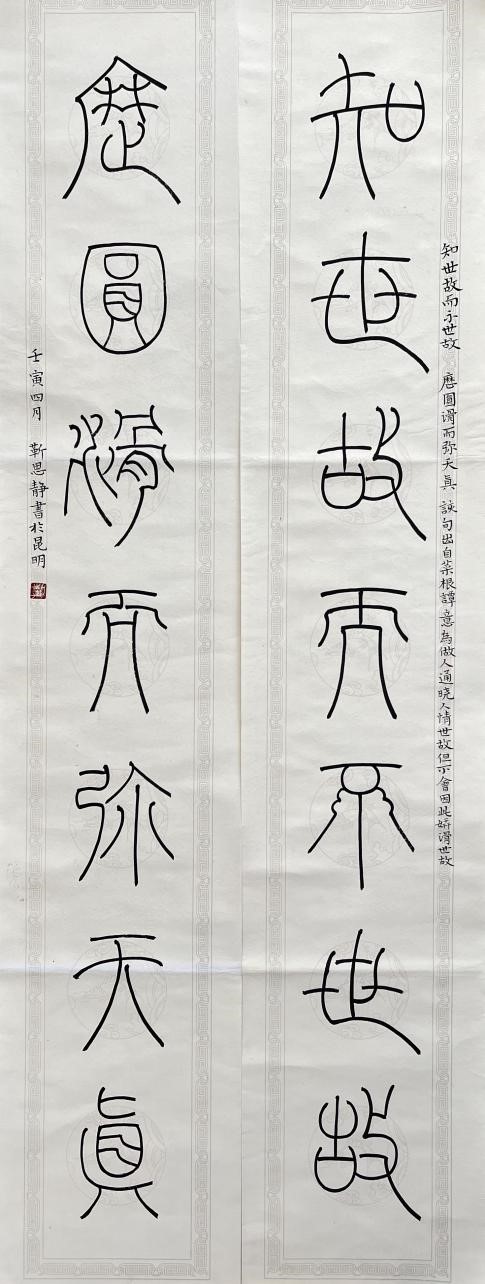 知世故而不世故 歷圓滑而弥天真 該句出自菜根譚意為做人通曉人情世故但不會因此滑世故
知世故而不世故
歷圓滑而弥天真
壬寅四月 靳思靜書於昆明